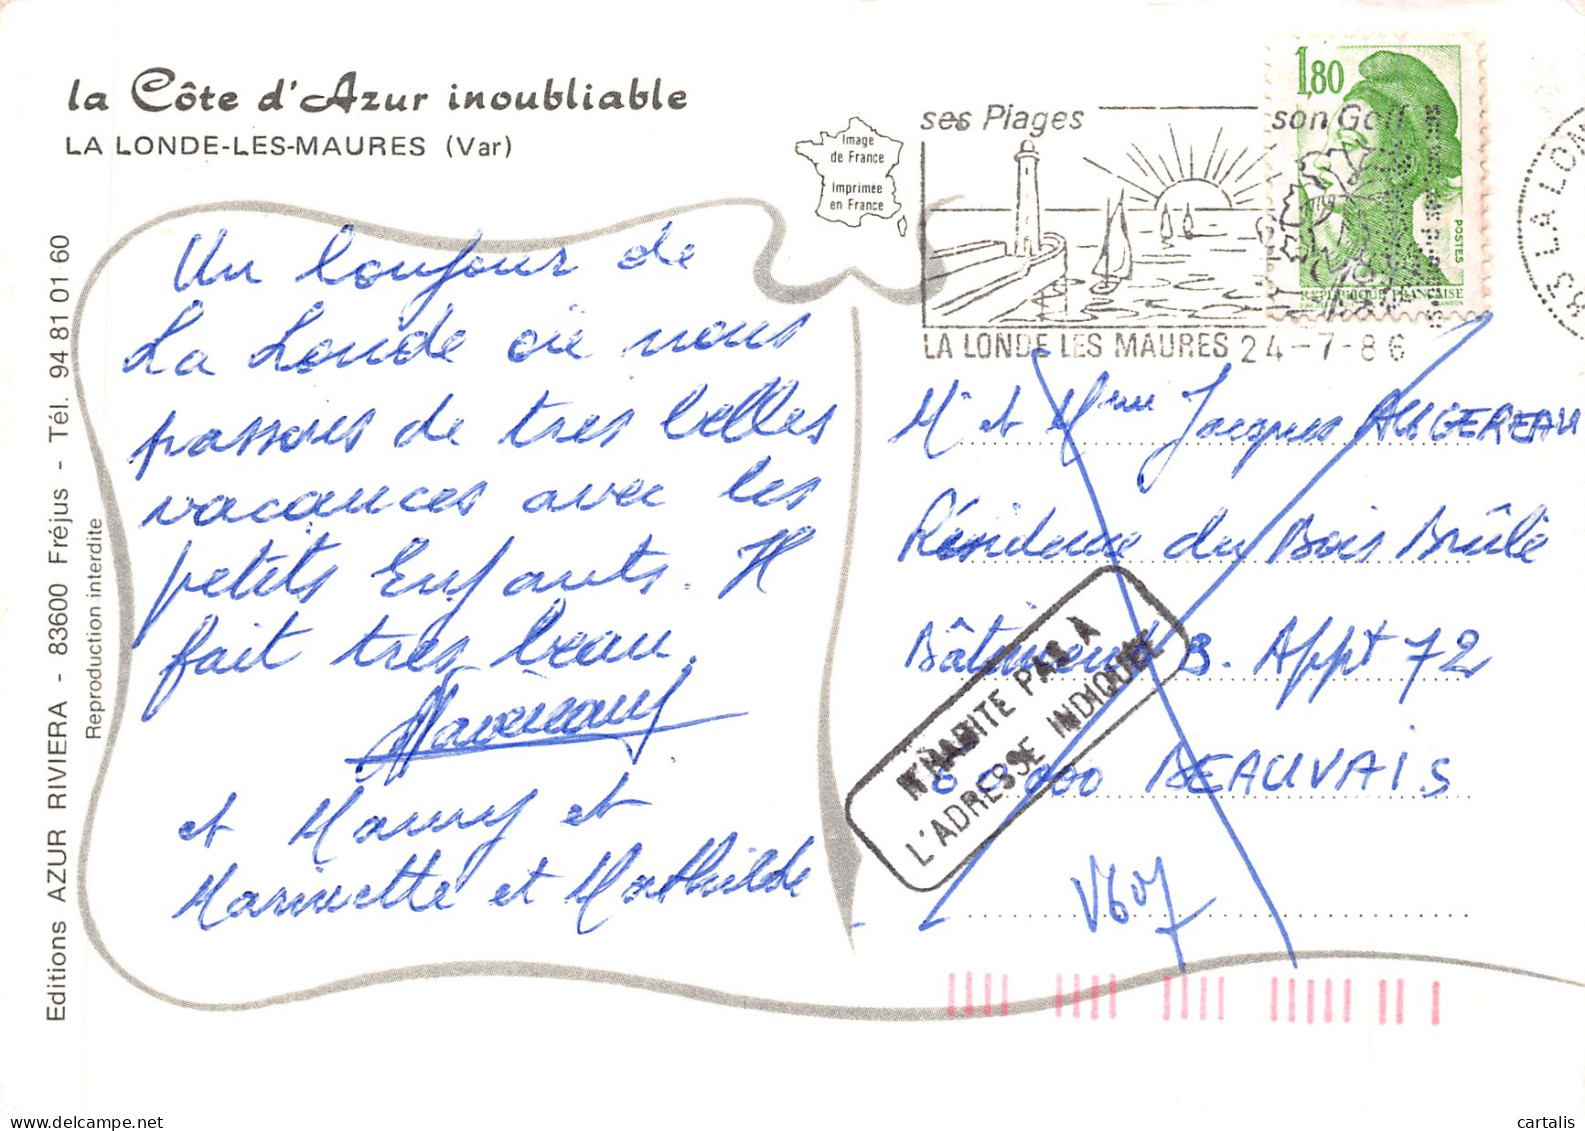 la Côte d'Azur inoubliable
LA LONDE-LES-MAURES (Var)
Image
de France
Imprimée
en France
ses Plages
son Golf
1,80
POSTES
REPUBLIQUE FRANÇAISE
LA LONDE LES MAURES 24-7-86
83 LA LON
Un bonjour de
La Londe où nous
passons de tres belles
vacances avec les
petits Enfants. Il
fait tres beau.
et Mamy et
Marinette et Mathilde
M. et Mme Jacques AUGEREAU
Résidence du Bois Brûlé
Bâtiment B. Appt 72
60000 BEAUVAIS
N'HABITE PAS À
L'ADRESSE INDIQUÉE
Editions AZUR RIVIERA - 83600 Fréjus - Tél. 94 81 01 60
Reproduction interdite
cartalis